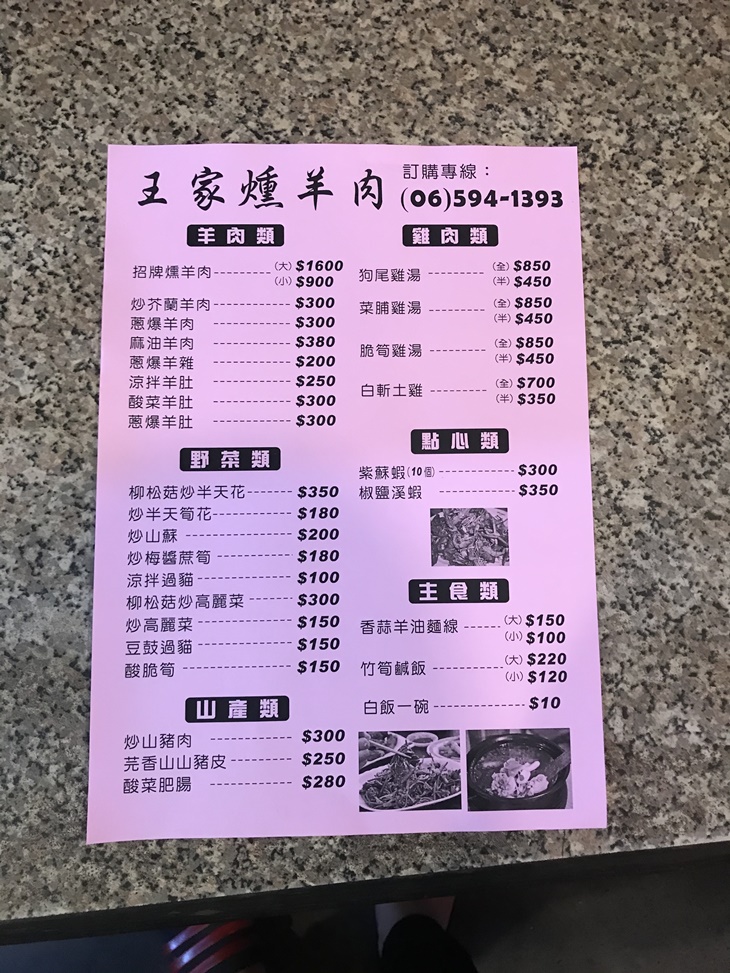 王家燻羊肉
訂購專線：
(06)594-1393
羊肉類
招牌燻羊肉----------(大)$1600
(小)$900
炒芥蘭羊肉----------$300
蔥爆羊肉----------$300
麻油羊肉----------$380
蔥爆羊雜----------$200
涼拌羊肚----------$250
酸菜羊肚----------$300
蔥爆羊肚----------$300
野菜類
柳松菇炒半天花-------$350
炒半天筍花----------$180
炒山蘇----------$200
炒梅醬蔗筍----------$180
涼拌過貓----------$100
柳松菇炒高麗菜-------$300
炒高麗菜----------$150
豆鼓過貓----------$150
酸脆筍----------$150
山產類
炒山豬肉----------$300
芫香山山豬皮-------$250
酸菜肥腸----------$280
雞肉類
狗尾雞湯--------(全)$850
(半)$450
菜脯雞湯--------(全)$850
(半)$450
脆筍雞湯--------(全)$850
(半)$450
白斬土雞--------(全)$700
(半)$350
點心類
紫蘇蝦(10個)----------$300
椒鹽溪蝦----------$350
主食類
香蒜羊油麵線-----(大)$150
(小)$100
竹筍鹹飯----------(大)$220
(小)$120
白飯一碗-------------$10